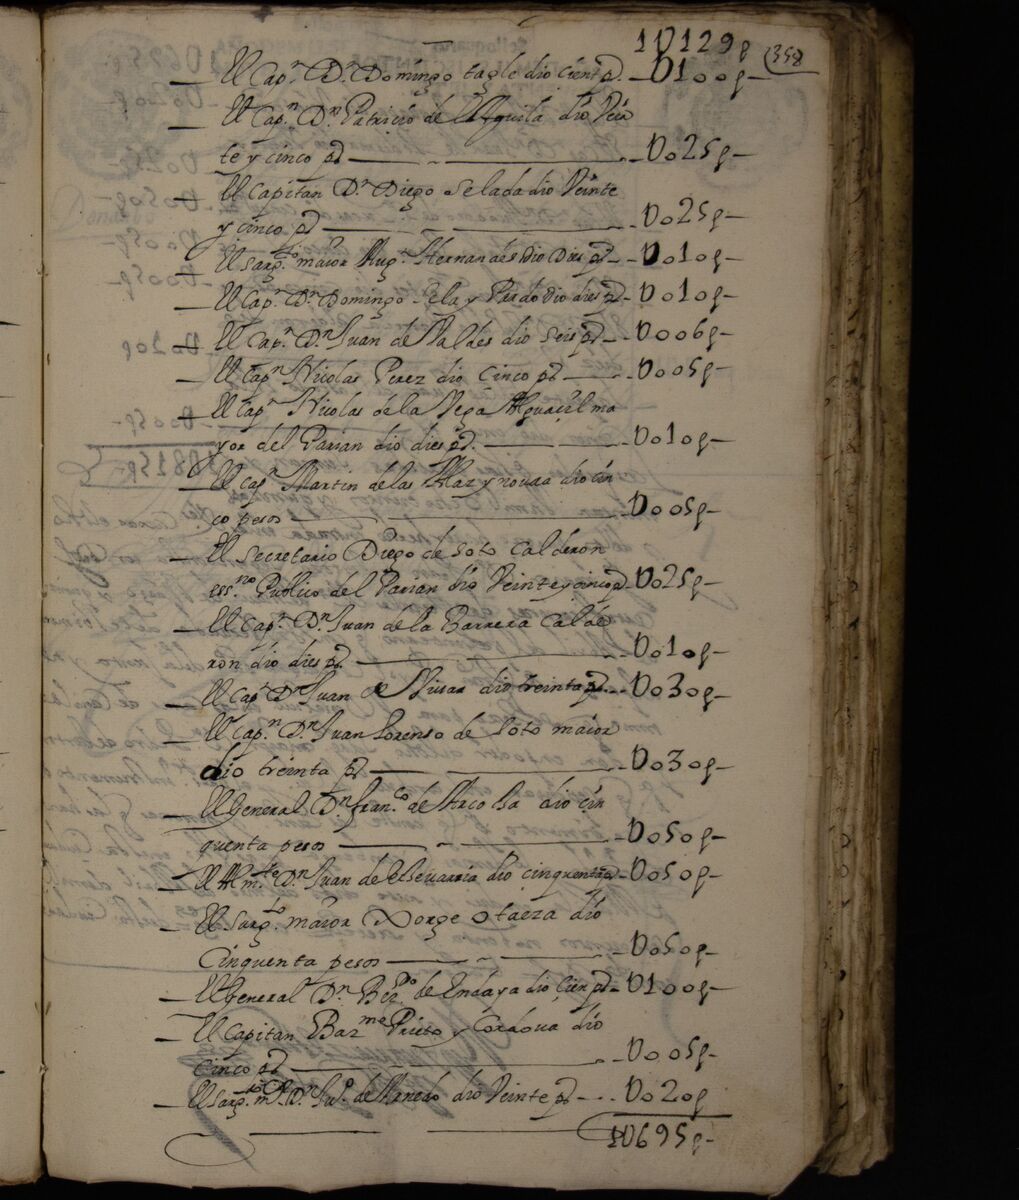 1U129p
358
El Capn. Dn. Domingo tagle dio cien ps. U100p
El Capn. Dn. Patricio del Aguila dio Vein
te y cinco ps U025p
El Capitan Dn Diego Selada dio Veinte
y cinco ps U025p
El sargto. maior Aug. Hernandes dio Dies ps U010p
El Capn. Dn. Domingo Sela y Pardo dio dies ps U010p
El Capn. Dn Juan de Valdes dio seis ps U006p
El Capn Nicolas Perez dio Cinco ps U005p
El Capn Nicolas de la Vega Alguacil ma
yor del Parian dio dies ps. U010p
El Capn Martin de las Alas y dio cin
co pesos U005p
El Secretario Diego de Soto Calderon
essno. Publico del Parian dio Veinte y cinco ps U025p
El Capn. Dn. Juan de la Barrera Calde
ron dio dies ps U010p
El Capn Dn Juan de dio treinta ps U030p
El Capn. Dn Juan Lorenso de Soto maior
dio treinta ps U030p
El General Dn Franco. de Arcoha dio cin
quenta pesos U050p
El Almte. Dn Juan de Chevarria dio cinquenta U050p
El sargto. maior Xorge Otaeza dio
Cinquenta pesos U050p
El General Dn. de Endaya dio Cien ps U100p
El Capitan Barme Prieto y Cordova dio
Cinco ps U005p
El sargto. mr. Dn Jun. de dio Veinte ps U020p
1U0695p